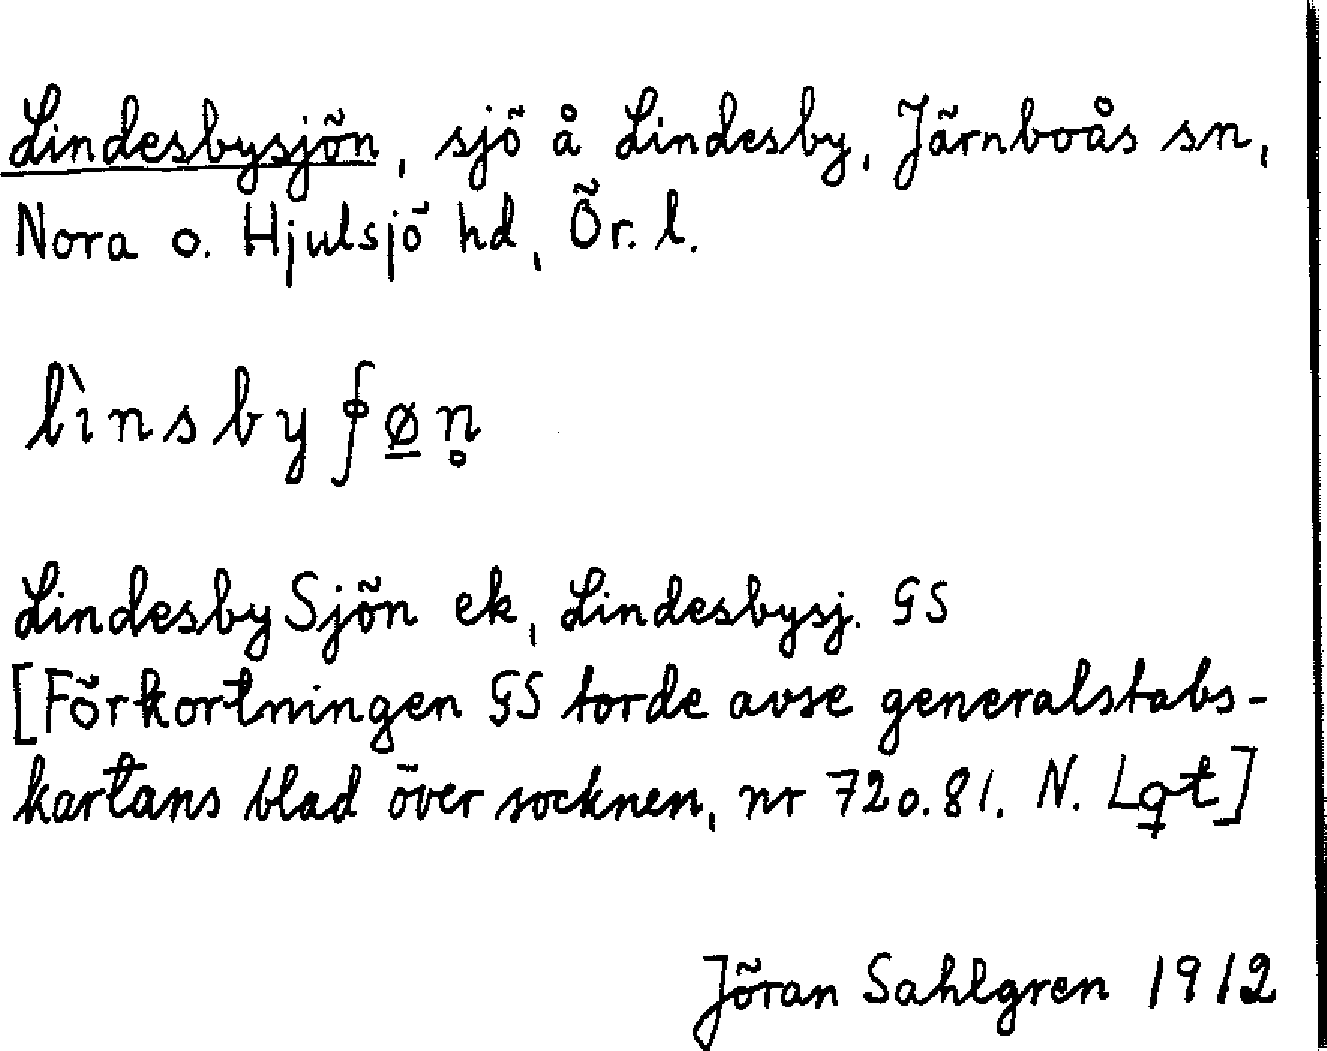 Lindesbysjön, sjö å Lindesby, Järnboås sn,
Nora o. Hjulsjö hd, Ör. l.
lìnsbyʄø̲n̥
Lindesby Sjön ek, Lindesbysj. GS
[Förkortningen GS torde avse generalstabs-
kartans blad över socknen, nr 72 o. 81. N. Lgt]
Jöran Sahlgren 1912